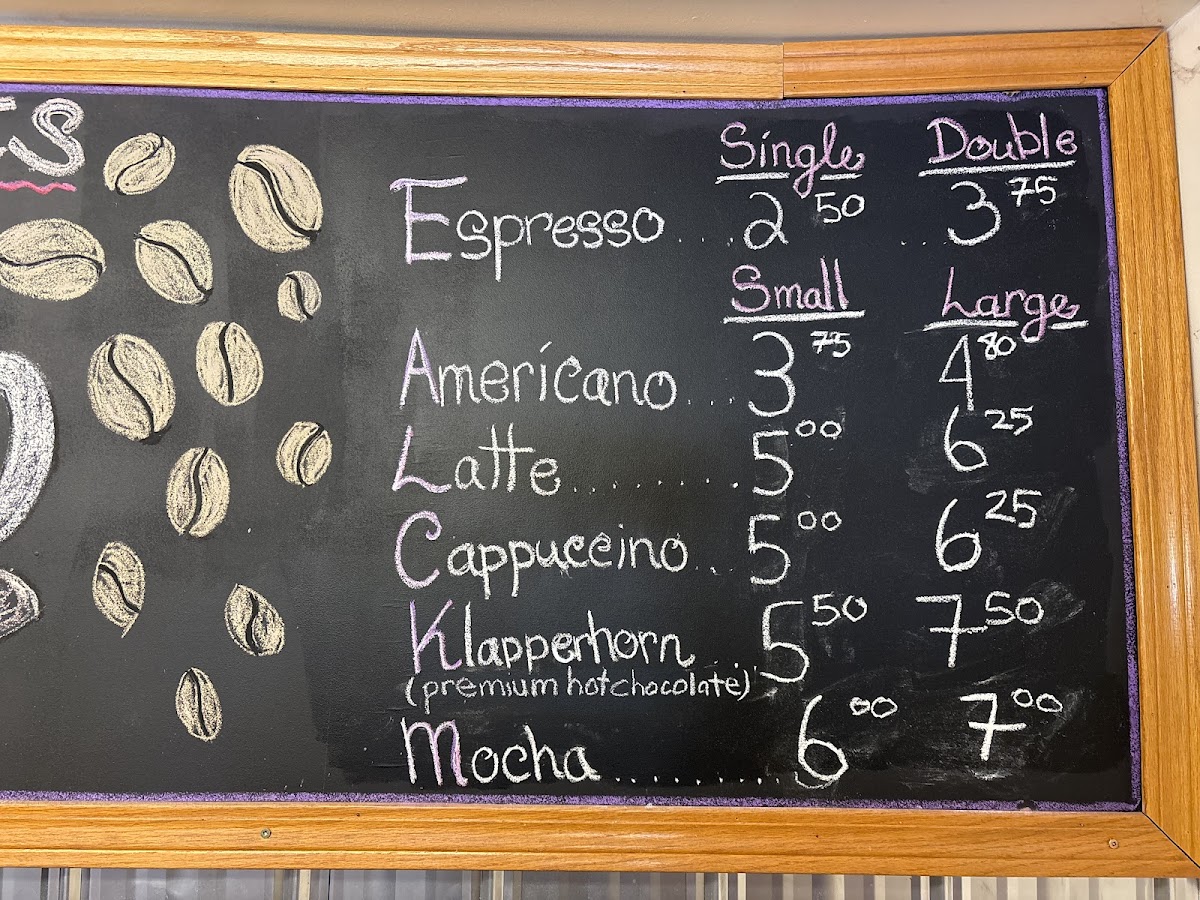 ES
Single Double
Espresso....2 50 ..3 75
Small Large
Americano...3 75 4 80
Latte.........5 00 6 25
Cappuccino..5 00 6 25
Klapperhorn....5 50 7 50
(premium hot chocolate)
Mocha..........6 00 7 00